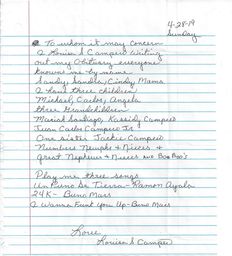 4-28-19
Sunday
To whom it may concern
I Louisa S Campero Writing
out my Obituary everyone
knowns me by name
Sandy, Sandra, Cindy Mama
I have three children
Michael, Carlos, Angela
three Grandchildren
Mariah Santiago, Kassidy Campero
Juan Carlos Campero Jr
One sister Jackie Campero
Numbers Nephs & Nieces &
Great Nephews & Nieces and
Play me three songs
Un Puno De Tierra - Ramon Ayala
24K - Bruno Mars
I Wanna Funt You Up - Bruno Mars
Love
S Campero